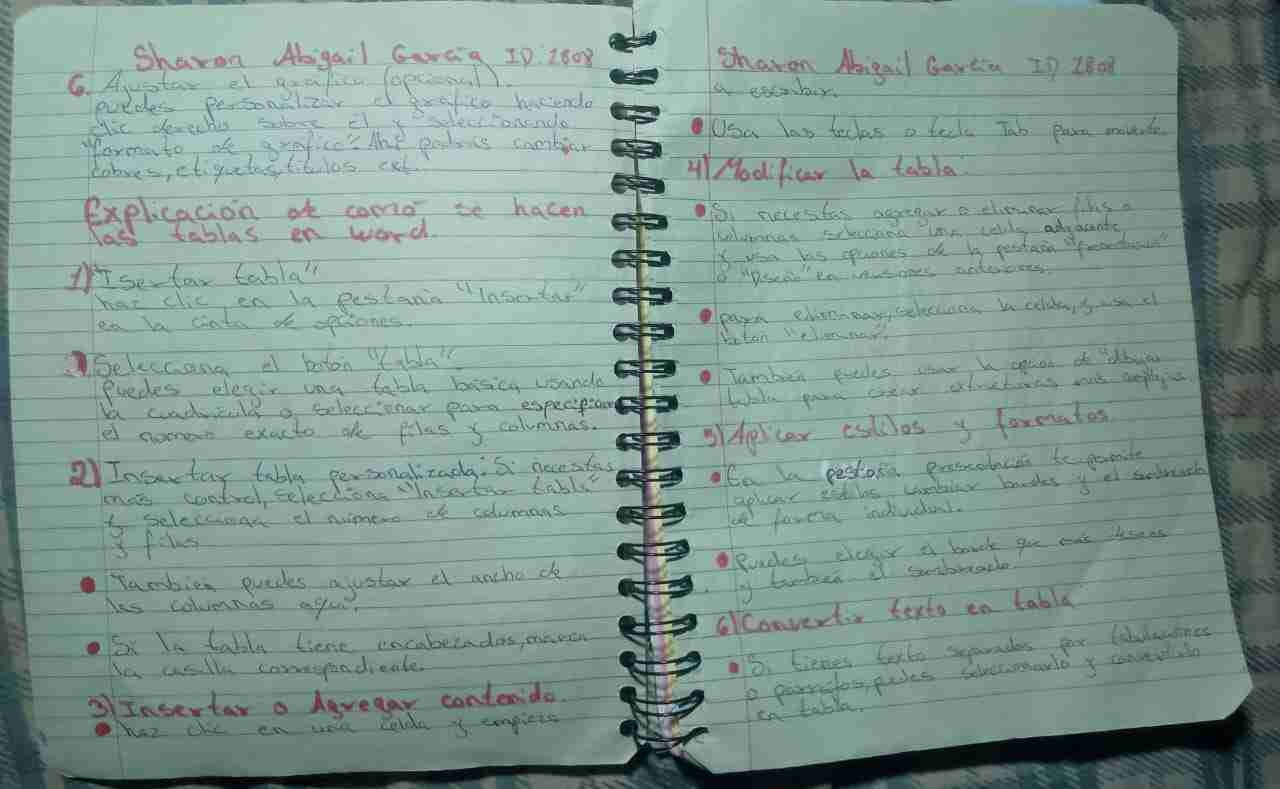 Sharon Abigail García ID: 2808
6. Ajustar el grafico (opcional).
puedes personalizar el grafico haciendo
clic derecho sobre el y seleccionando
"formato de grafico". Ahi podras cambiar
colores, etiquetas, titulos ext.
Explicación de como se hacen
las tablas en word.
1) "Isertar tabla"
haz clic en la pestaña "Insertar"
en la cinta de opciones.
Selecciona el boton "tabla".
Puedes elegir una tabla basica usando
la cuadricula o seleccionar para especificar
el numero exacto de filas y columnas.
2) Insertar tabla personalizada: Si necesitas
mas control, selecciona "Insertar tabla"
y selecciona el número de columnas
y filas
También puedes ajustar el ancho de
las columnas aquí.
Si la tabla tiene encabezados, marca
la casilla correspondiente.
3) Insertar o Agregar contenido
haz clic en una celda y empieza
Sharon Abigail García ID 2808
a escribir.
Usa las teclas o tecla Tab para moverte
4) Modificar la tabla
Si necesitas agregar o eliminar filas o
columnas selecciona una celda adyacente
y usa las opciones de la pestaña
o "Diseño" en versiones anteriores.
para eliminar, selecciona la celda, y usa el
boton "eliminar".
También puedes usar la opcion de "dibujar
tabla para crear estructuras mas
5) Aplicar estilos y formatos
En la pestaña presentación te permite
aplicar estilos, cambiar bordes y el sombreado
de forma individual.
Puedes elegir el borde que más deseas
y tambien el sombreado
6) Convertir texto en tabla
Si tienes texto separados por tabulaciones
o parrafos, puedes seleccionarlo y convertirlo
en tabla.